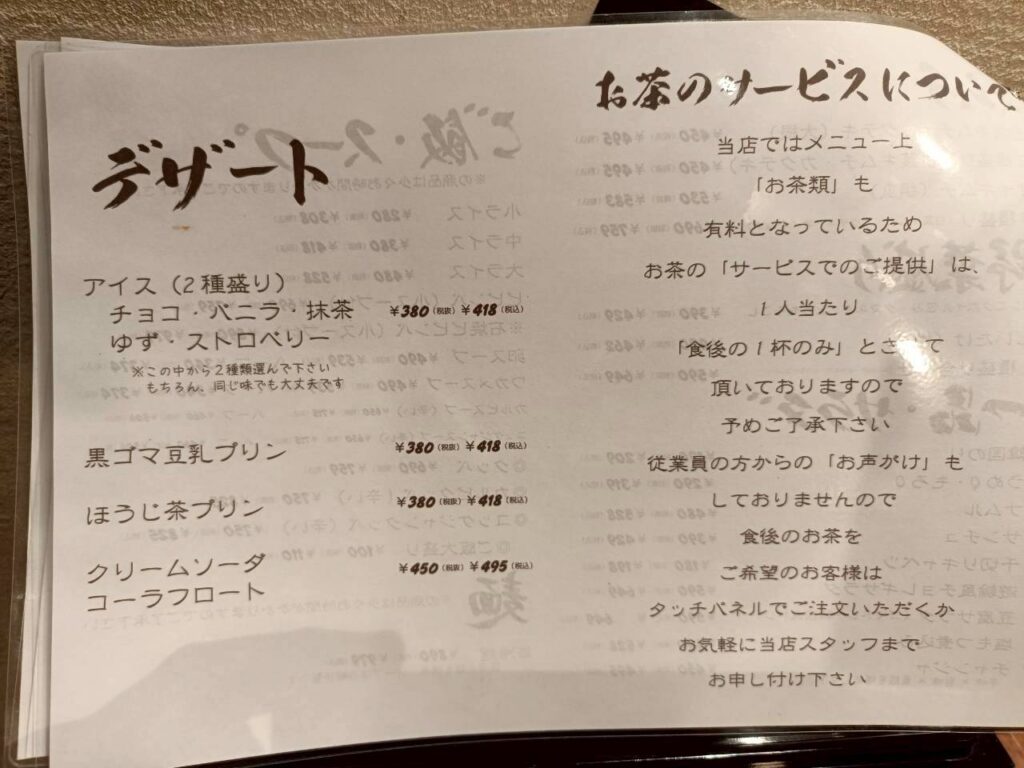 デザート
アイス（2種盛り）
チョコ・バニラ・抹茶 ¥380（税抜）¥418（税込）
ゆず・ストロベリー
※この中から2種類選んで下さい
もちろん、同じ味でも大丈夫です
黒ゴマ豆乳プリン ¥380（税抜）¥418（税込）
ほうじ茶プリン ¥380（税抜）¥418（税込）
クリームソーダ ¥450（税抜）¥495（税込）
コーラフロート
お茶のサービスについて
当店ではメニュー上
「お茶類」も
有料となっているため
お茶の「サービスでのご提供」は、
1人当たり
「食後の1杯のみ」とさせて
頂いておりますので
予めご了承下さい
従業員の方からの「お声がけ」も
しておりませんので
食後のお茶を
ご希望のお客様は
タッチパネルでご注文いただくか
お気軽に当店スタッフまで
お申し付け下さい